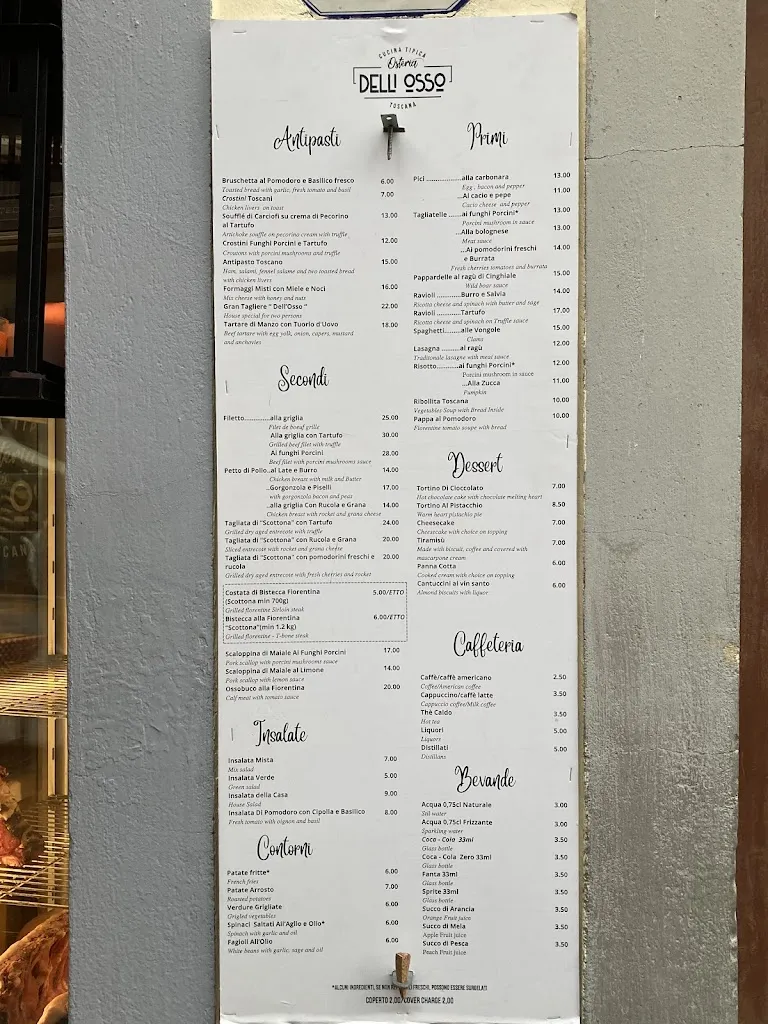 CUCINA TIPICA
Osteria
DELL OSSO
TOSCANA
Antipasti
Bruschetta al Pomodoro e Basilico fresco 6.00
Toasted bread with garlic, fresh tomato and basil
Crostini Toscani 7.00
Chicken livers on toast
Soufflè di Carciofi su crema di Pecorino 13.00
al Tartufo
Artichoke souffle on pecorino cream with truffle
Crostini Funghi Porcini e Tartufo 12.00
Croutons with porcini mushrooms and truffle
Antipasto Toscano 15.00
Ham, salami, fennel salame and two toasted bread
with chicken livers
Formaggi Misti con Miele e Noci 16.00
Mix cheese with honey and nuts
Gran Tagliere " Dell'Osso " 22.00
House special for two persons
Tartare di Manzo con Tuorlo d'Uovo 18.00
Beef tartare with egg yolk, onion, capers, mustard
and anchovies
Secondi
Filetto..............alla griglia 25.00
Filet de boeuf grille
Alla griglia con Tartufo 30.00
Grilled beef filet with truffle
Ai funghi Porcini 28.00
Beef filet with porcini mushrooms sauce
Petto di Pollo..al Late e Burro 14.00
Chicken breats with milk and Butter
..Gorgonzola e Piselli 17.00
with gorgonzola bacon and peas
..alla griglia Con Rucola e Grana 14.00
Chicken breast with rocket and grana cheese
Tagliata di "Scottona" con Tartufo 24.00
Grilled dry aged entrecote with truffle
Tagliata di "Scottona" con Rucola e Grana 20.00
Sliced entrecote with rocket and grana cheese
Tagliata di "Scottona" con pomodorini freschi e 20.00
rucola
Grilled dry aged entrecote with fresh cherries and rocket
Costata di Bistecca Fiorentina 5.00/ETTO
(Scottona min 700g)
Grilled florentine Sirloin steak
Bistecca alla Fiorentina 6.00/ETTO
"Scottona"(min 1.2 kg)
Grilled florentine - T-bone steak
Scaloppina di Maiale Ai Funghi Porcini 17.00
Pork scallop with porcini mushrooms sauce
Scaloppina di Maiale al Limone 14.00
Pork scallop with lemon sauce
Ossobuco alla Fiorentina 20.00
Calf meat with tomato sauce
Insalate
Insalata Mista 7.00
Mix salad
Insalata Verde 5.00
Green salad
Insalata della Casa 9.00
House Salad
Insalata Di Pomodoro con Cipolla e Basilico 8.00
Fresh tomato with oignon and basil
Contorni
Patate fritte* 6.00
French fries
Patate Arrosto 7.00
Roasted potatoes
Verdure Grigliate 6.00
Grigled vegetables
Spinaci Saltati All'Aglio e Olio* 6.00
Spinach with garlic and oil
Fagioli All'Olio 6.00
White beans with garlic, sage and oil
Primi
Pici ..................alla carbonara 13.00
Egg , bacon and pepper
...Al cacio e pepe 11.00
Cacio cheese and pepper
Tagliatelle ......ai funghi Porcini* 13.00
Porcini mushroom in sauce
...Alla bolognese 13.00
Meat sauce
...Ai pomodorini freschi 14.00
e Burrata
Fresh cherries tomatoes and burrata
Pappardelle al ragù di Cinghiale 15.00
Wild boar sauce
Ravioli ............Burro e Salvia 14.00
Ricotta cheese and spinach with butter and sage
Ravioli ............Tartufo 17.00
Ricotta cheese and spinach on Truffle sauce
Spaghetti..........alle Vongole 15.00
Clams
Lasagna .........al ragù 12.00
Traditionale lasagne with meat sauce
Risotto..........ai funghi Porcini* 12.00
Porcini mushroom in sauce
...Alla Zucca 11.00
Pumpkin
Ribollita Toscana 10.00
Vegetables Soup with Bread Inside
Pappa al Pomodoro 10.00
Florentine tomato soupe with bread
Dessert
Tortino Di Cioccolato 7.00
Hot chocolate cake with chocolate melting heart
Tortino Al Pistacchio 8.50
Warm heart pistachio pie
Cheesecake 7.00
Cheesecake with choice on topping
Tiramisù 7.00
Made with biscuit, coffee and covered with
mascarpone cream
Panna Cotta 6.00
Cooked cream with choice on topping
Cantuccini al vin santo 6.00
Almond biscuits with liquor
Caffetteria
Caffè/caffè americano 2.50
Coffee/American coffee
Cappuccino/caffè latte 3.50
Cappuccio coffee/Milk coffee
Thè Caldo 3.50
Hot tea
Liquori 5.00
Liquors
Distillati 5.00
Distillans
Bevande
Acqua 0,75cl Naturale 3.00
Still water
Acqua 0,75cl Frizzante 3.00
Sparkling water
Coca - Cola 33ml 3.50
Glass bottle
Coca - Cola Zero 33ml 3.50
Glass bottle
Fanta 33ml 3.50
Glass bottle
Sprite 33ml 3.50
Glass bottle
Succo di Arancia 3.50
Orange Fruit juice
Succo di Mela 3.50
Apple Fruit juice
Succo di Pesca 3.50
Peach Fruit juice
*ALCUNI INGREDIENTI, SE NON FRESCHI, POSSONO ESSERE SURGELATI
COPERTO 2,00/COVER CHARGE 2,00